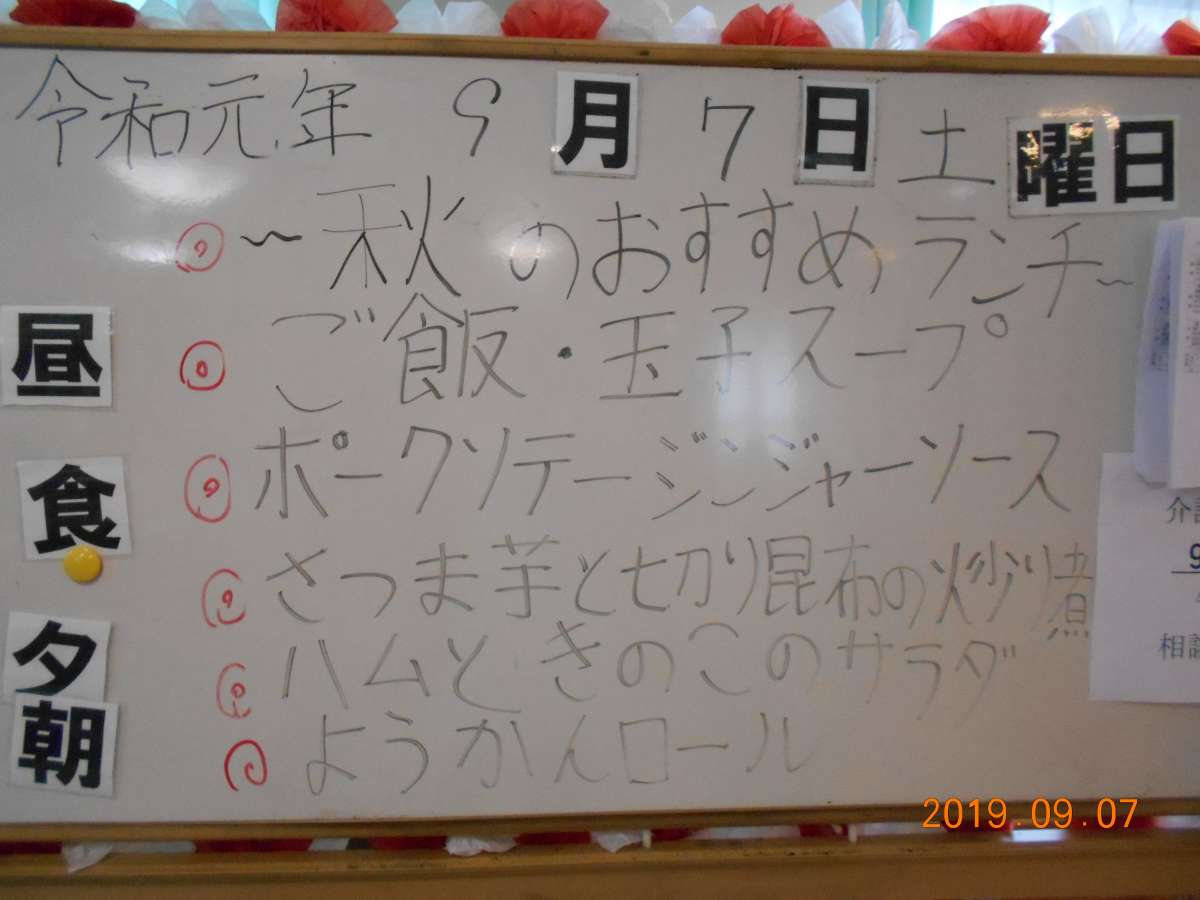 令和元年 9月7日土曜日
～秋のおすすめランチ～
ご飯・玉子スープ
ポークソテージンジャーソース
さつま芋と切り昆布の炒り煮
ハムときのこのサラダ
ようかんロール
昼
食
夕
朝
介
9
相談
2019.09.07